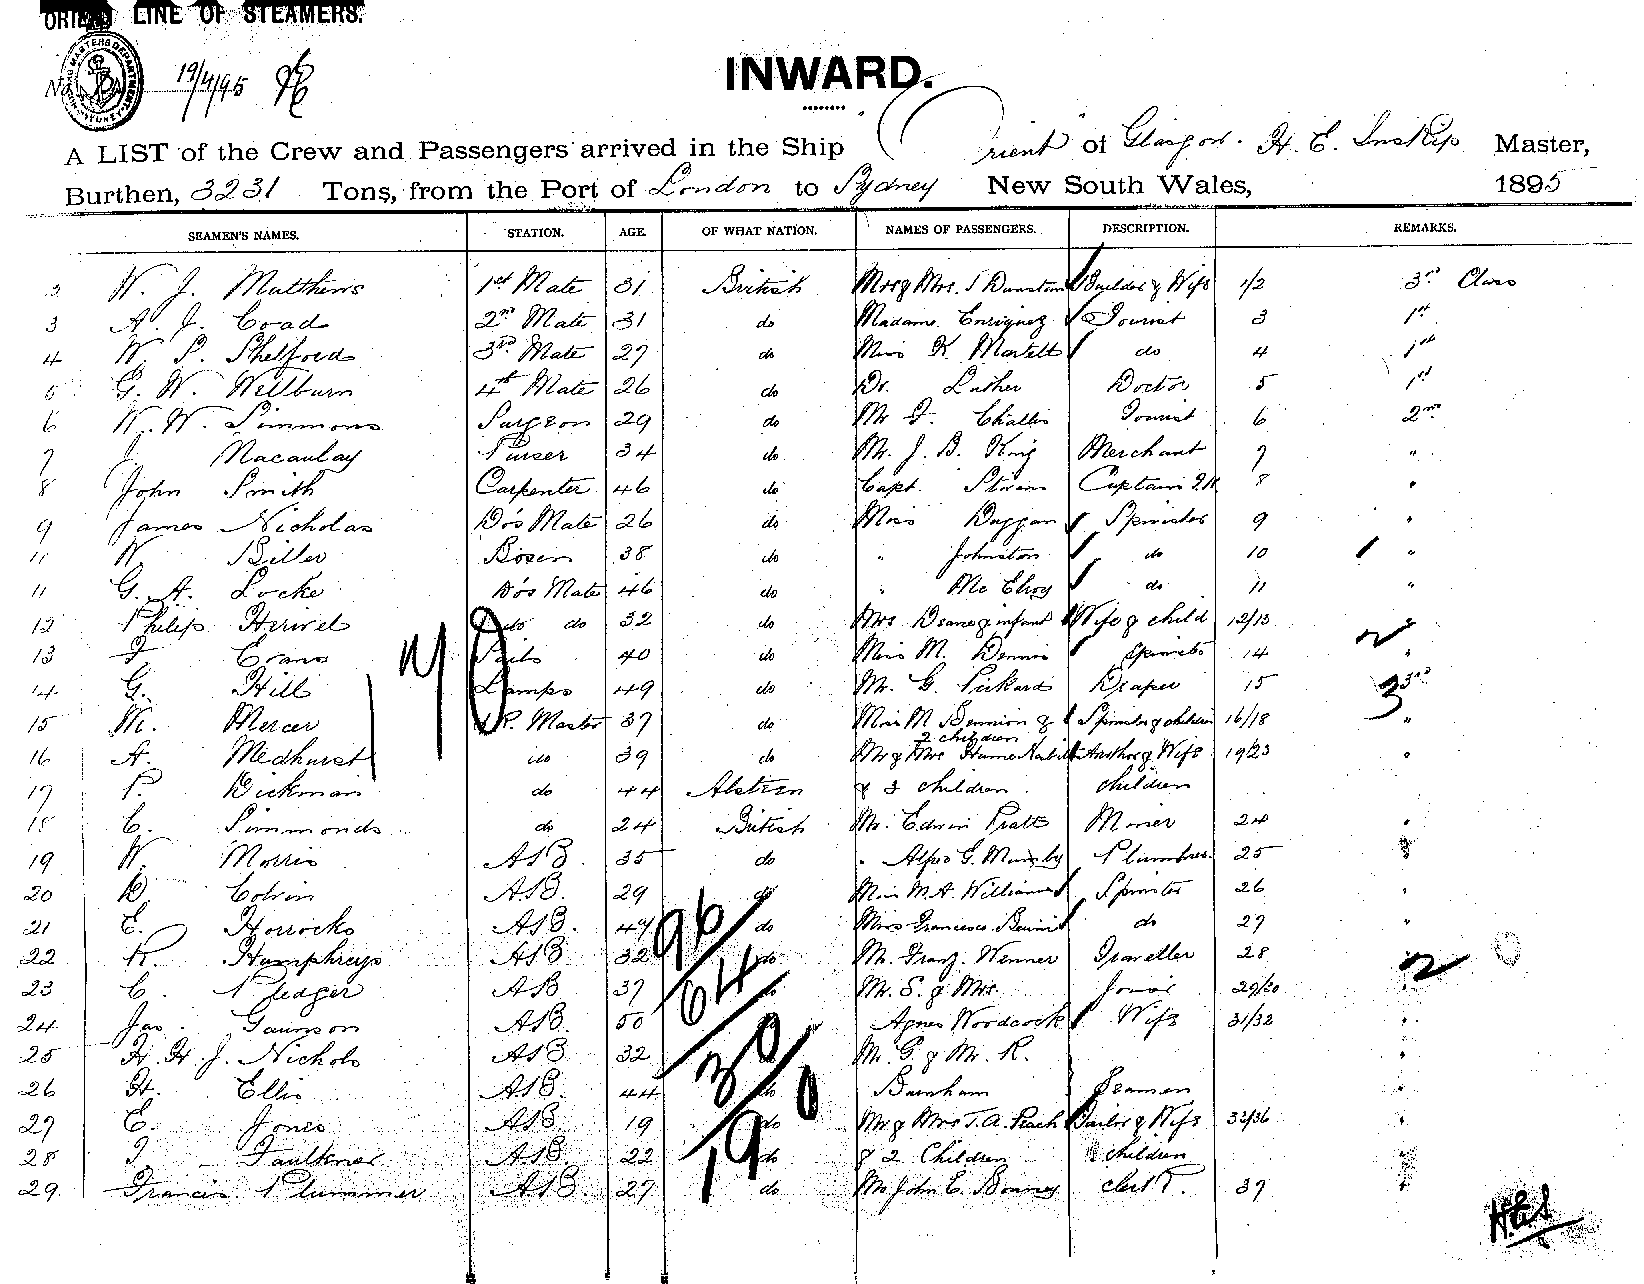 ORIENT LINE OF STEAMERS.
No 19/4/95
INWARD.
A LIST of the Crew and Passengers arrived in the Ship Orient of Glasgow. H. E. Inskip Master,
Burthen, 3231 Tons, from the Port of London to Sydney New South Wales, 1895
SEAMEN'S NAMES. STATION. AGE. OF WHAT NATION. NAMES OF PASSENGERS. DESCRIPTION. REMARKS.
2 W. J. Matthews 1st Mate 31 British Mr & Mrs. Dunstan Builder & Wife 1/2 3rd Class
3 A. J. Coad 2nd Mate 31 do Madame Enriquez Tourist 3 1st
4 W. P. Shelford 3rd Mate 27 do Miss K. Martelt do 4 1st
5 G. W. Wellburn 4th Mate 26 do Dr. Luther Doctor 5 1st
6 W. W. Simmons Surgeon 29 do Mr Challis Tourist 6 2nd
7 J. Macaulay Purser 34 do Mr. J. B. King Merchant 7 "
8 John Smith Carpenter 46 do Capt. Captain 8 "
9 James Nicholas Do's Mate 26 do Miss Duggan Spinster 9 "
11 W Biller Bosen 38 do " Johnston do 10 "
11 G. A. Locke Do's Mate 46 do " Mc Elroy do 11 "
12 Philip do do 32 do Mrs Deane & infant Wife & child 12/13
13 Evans Sails 40 do Miss M. Dennis Spinster 14 "
14 G. Hill Lamps 49 do Mr. G. Pickard Draper 15 3rd
15 M. Mercer Qr. Master 37 do Miss M Bennion & Spinster & children 16/18 "
2 children
16 A. Medhurst do 39 do Mr & Mrs Hume Author & Wife 19/23 "
17 P. Dickman do 44 Alstern & 3 children children
18 C. Simmonds do 24 British Mr. Edwin Pratt Miner 24 "
19 W. Morris AB. 35 do " Alfred G. Mumby Plumber 25 "
20 D Colvin AB. 29 do Miss M. A. Williams Spinster 26 "
21 E. Horrocks AB. 47 do Miss Francesca do 27 "
22 R. Humphreys AB 32 do Mr. Franz Wenner Traveller 28 "
23 C. Pledger AB 37 do Mr. S. & Mrs. 29/30 "
24 Jas. AB. 50 Agnes Woodcock Wife 31/32 "
25 H. H. J. Nichols AB 32 Mr. G. & Mr. R. "
26 H. Ellis AB. 44 do Burnham Seaman "
27 E. Jones AB. 19 do Mr & Mrs T. A. Peach Tailor & Wife 33/36 "
28 Faulkner AB 22 do & 2 Children children
29. Francis Plummer AB. 27 do Mr John E. Bonney clerk 37 "
96
64
30
19